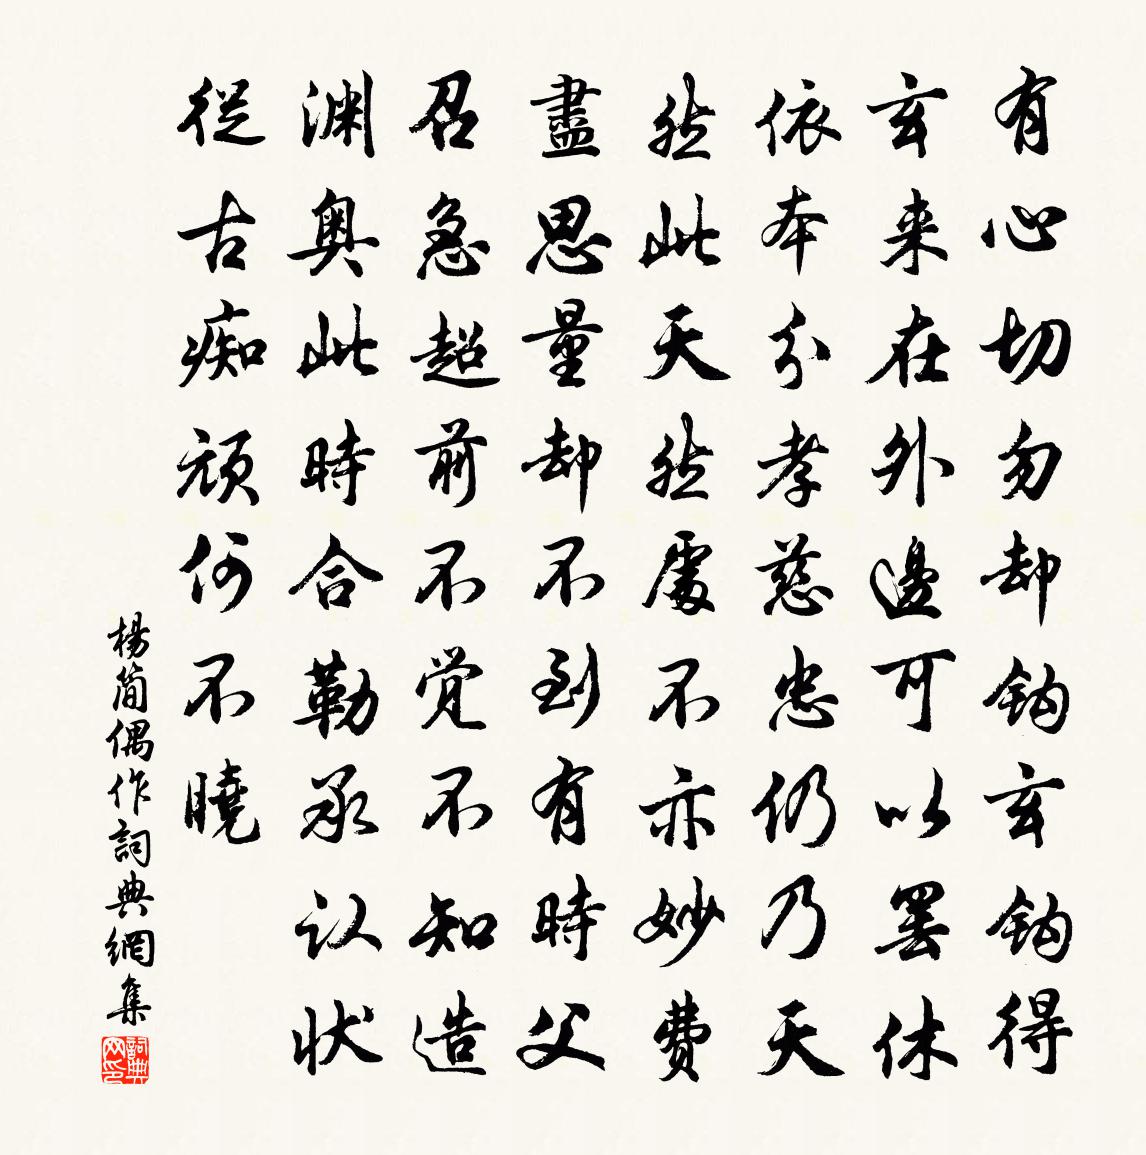 有心切勿却鈎玄鈎得
玄来在外邊可以罢休
依本分孝慈忠仍乃天
然此天然處不亦妙費
盡思量却不到有時父
召急趋前不觉不知造
渊奥此時合勒承认状
從古痴顽何不曉
楊简偶作詞典網集
詞典网印